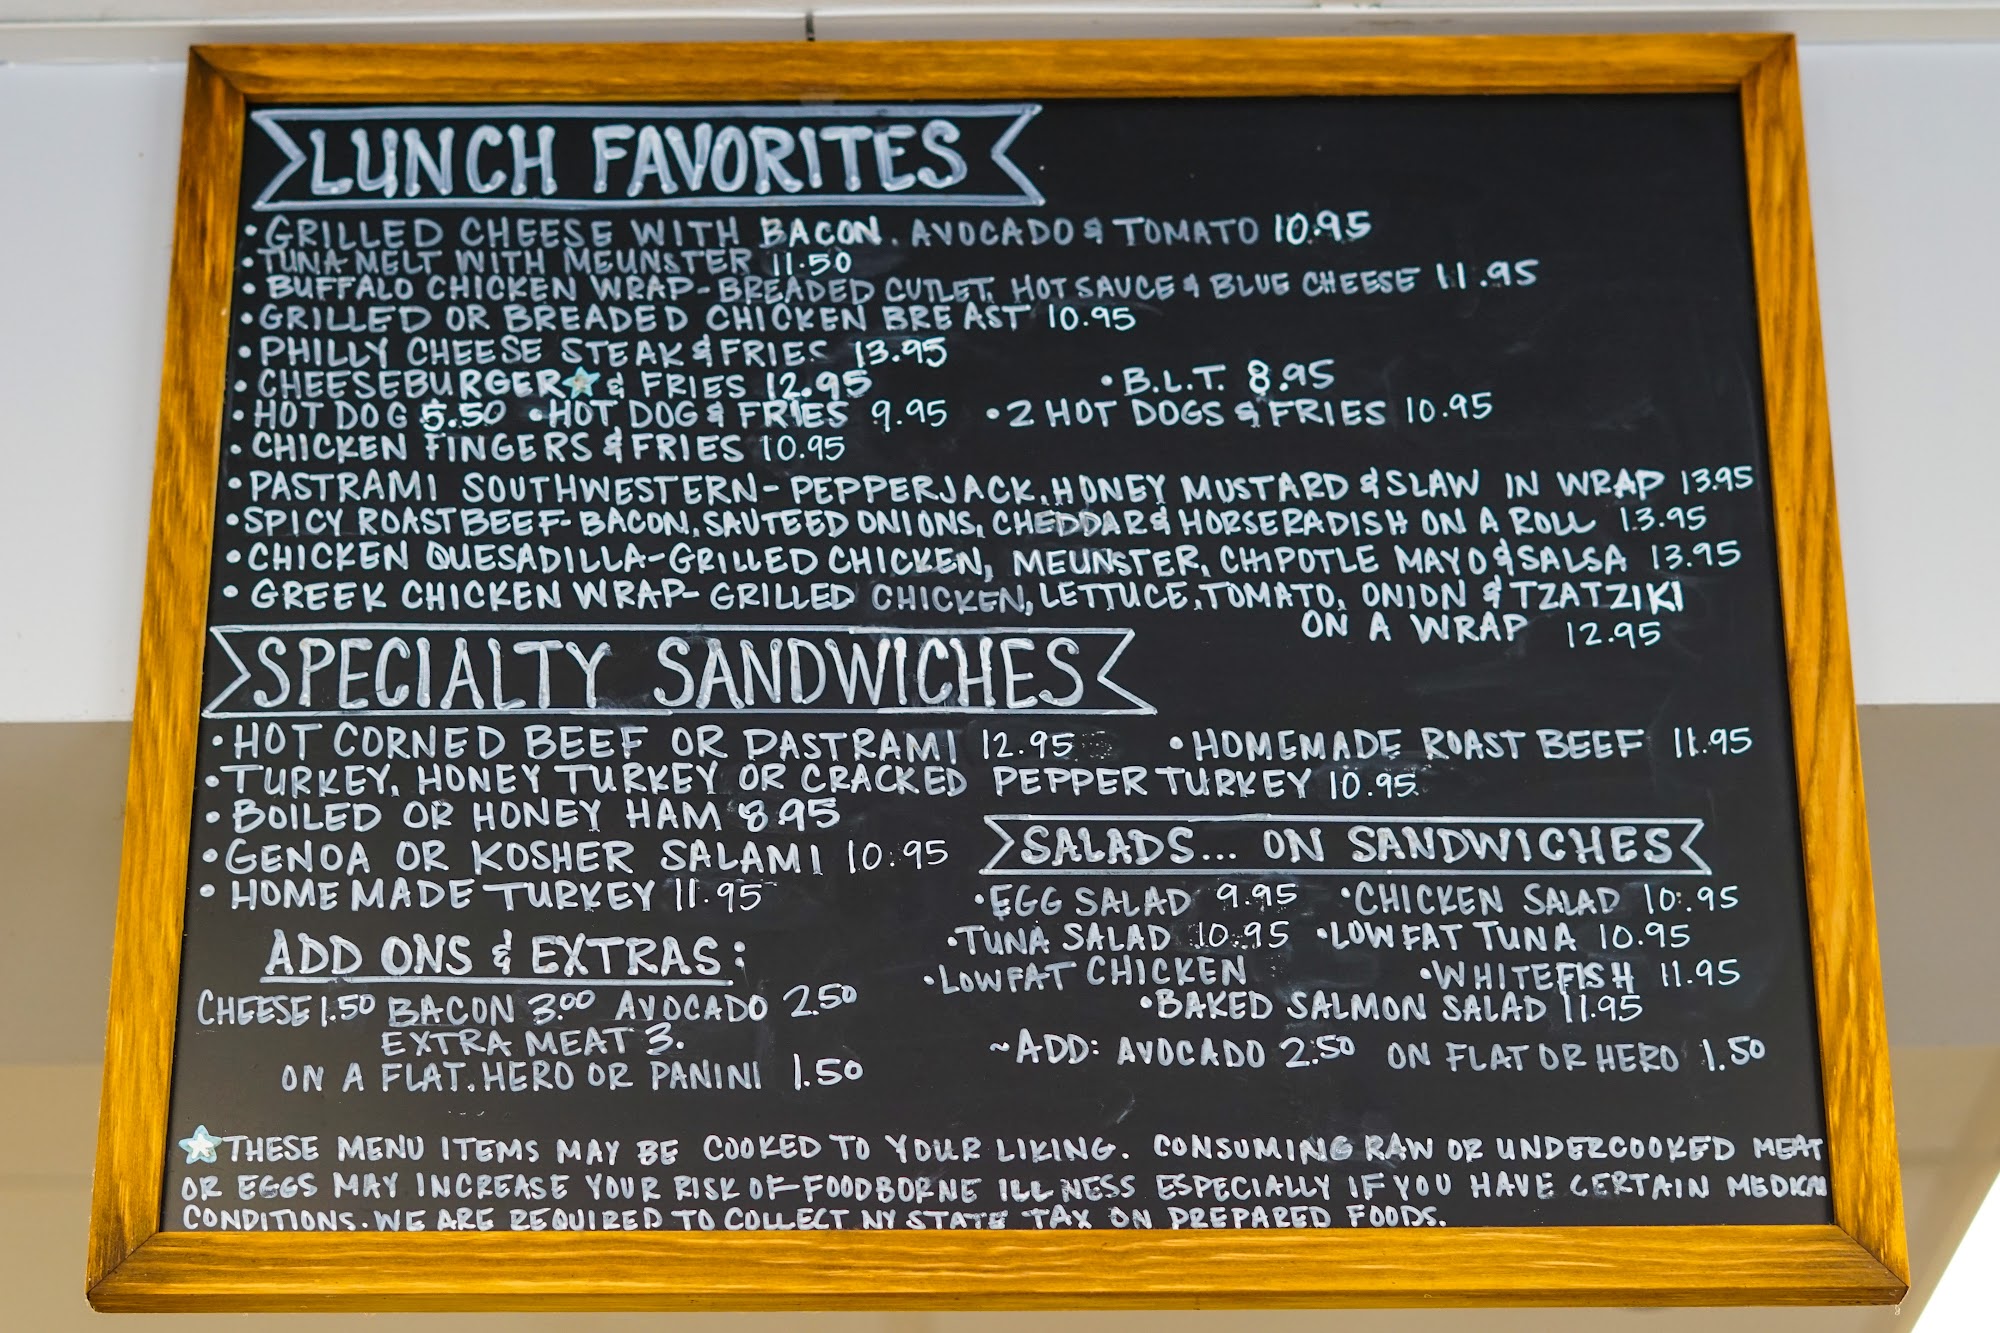 LUNCH FAVORITES
• GRILLED CHEESE WITH BACON, AVOCADO & TOMATO 10.95
• TUNA MELT WITH MEUNSTER 11.50
• BUFFALO CHICKEN WRAP - BREADED CUTLET, HOT SAUCE & BLUE CHEESE 11.95
• GRILLED OR BREADED CHICKEN BREAST 10.95
• PHILLY CHEESE STEAK & FRIES 13.95
• CHEESEBURGER☆ & FRIES 12.95 • B.L.T. 8.95
• HOT DOG 5.50 • HOT DOG & FRIES 9.95 • 2 HOT DOGS & FRIES 10.95
• CHICKEN FINGERS & FRIES 10.95
• PASTRAMI SOUTHWESTERN - PEPPERJACK, HONEY MUSTARD & SLAW IN WRAP 13.95
• SPICY ROAST BEEF - BACON, SAUTEED ONIONS, CHEDDAR & HORSERADISH ON A ROLL 13.95
• CHICKEN QUESADILLA - GRILLED CHICKEN, MEUNSTER, CHIPOTLE MAYO & SALSA 13.95
• GREEK CHICKEN WRAP - GRILLED CHICKEN, LETTUCE, TOMATO, ONION & TZATZIKI
ON A WRAP 12.95
SPECIALTY SANDWICHES
• HOT CORNED BEEF OR PASTRAMI 12.95 • HOMEMADE ROAST BEEF 11.95
• TURKEY, HONEY TURKEY OR CRACKED PEPPER TURKEY 10.95
• BOILED OR HONEY HAM 8.95
• GENOA OR KOSHER SALAMI 10.95
• HOMEMADE TURKEY 11.95
SALADS... ON SANDWICHES
• EGG SALAD 9.95 • CHICKEN SALAD 10.95
• TUNA SALAD 10.95 • LOWFAT TUNA 10.95
• LOWFAT CHICKEN • WHITEFISH 11.95
• BAKED SALMON SALAD 11.95
~ADD: AVOCADO 2.50 ON FLAT OR HERO 1.50
ADD ONS & EXTRAS:
CHEESE 1.50 BACON 3.00 AVOCADO 2.50
EXTRA MEAT 3.
ON A FLAT, HERO OR PANINI 1.50
☆THESE MENU ITEMS MAY BE COOKED TO YOUR LIKING. CONSUMING RAW OR UNDERCOOKED MEAT
OR EGGS MAY INCREASE YOUR RISK OF FOODBORNE ILLNESS ESPECIALLY IF YOU HAVE CERTAIN MEDICAL
CONDITIONS. WE ARE REQUIRED TO COLLECT NY STATE TAX ON PREPARED FOODS.